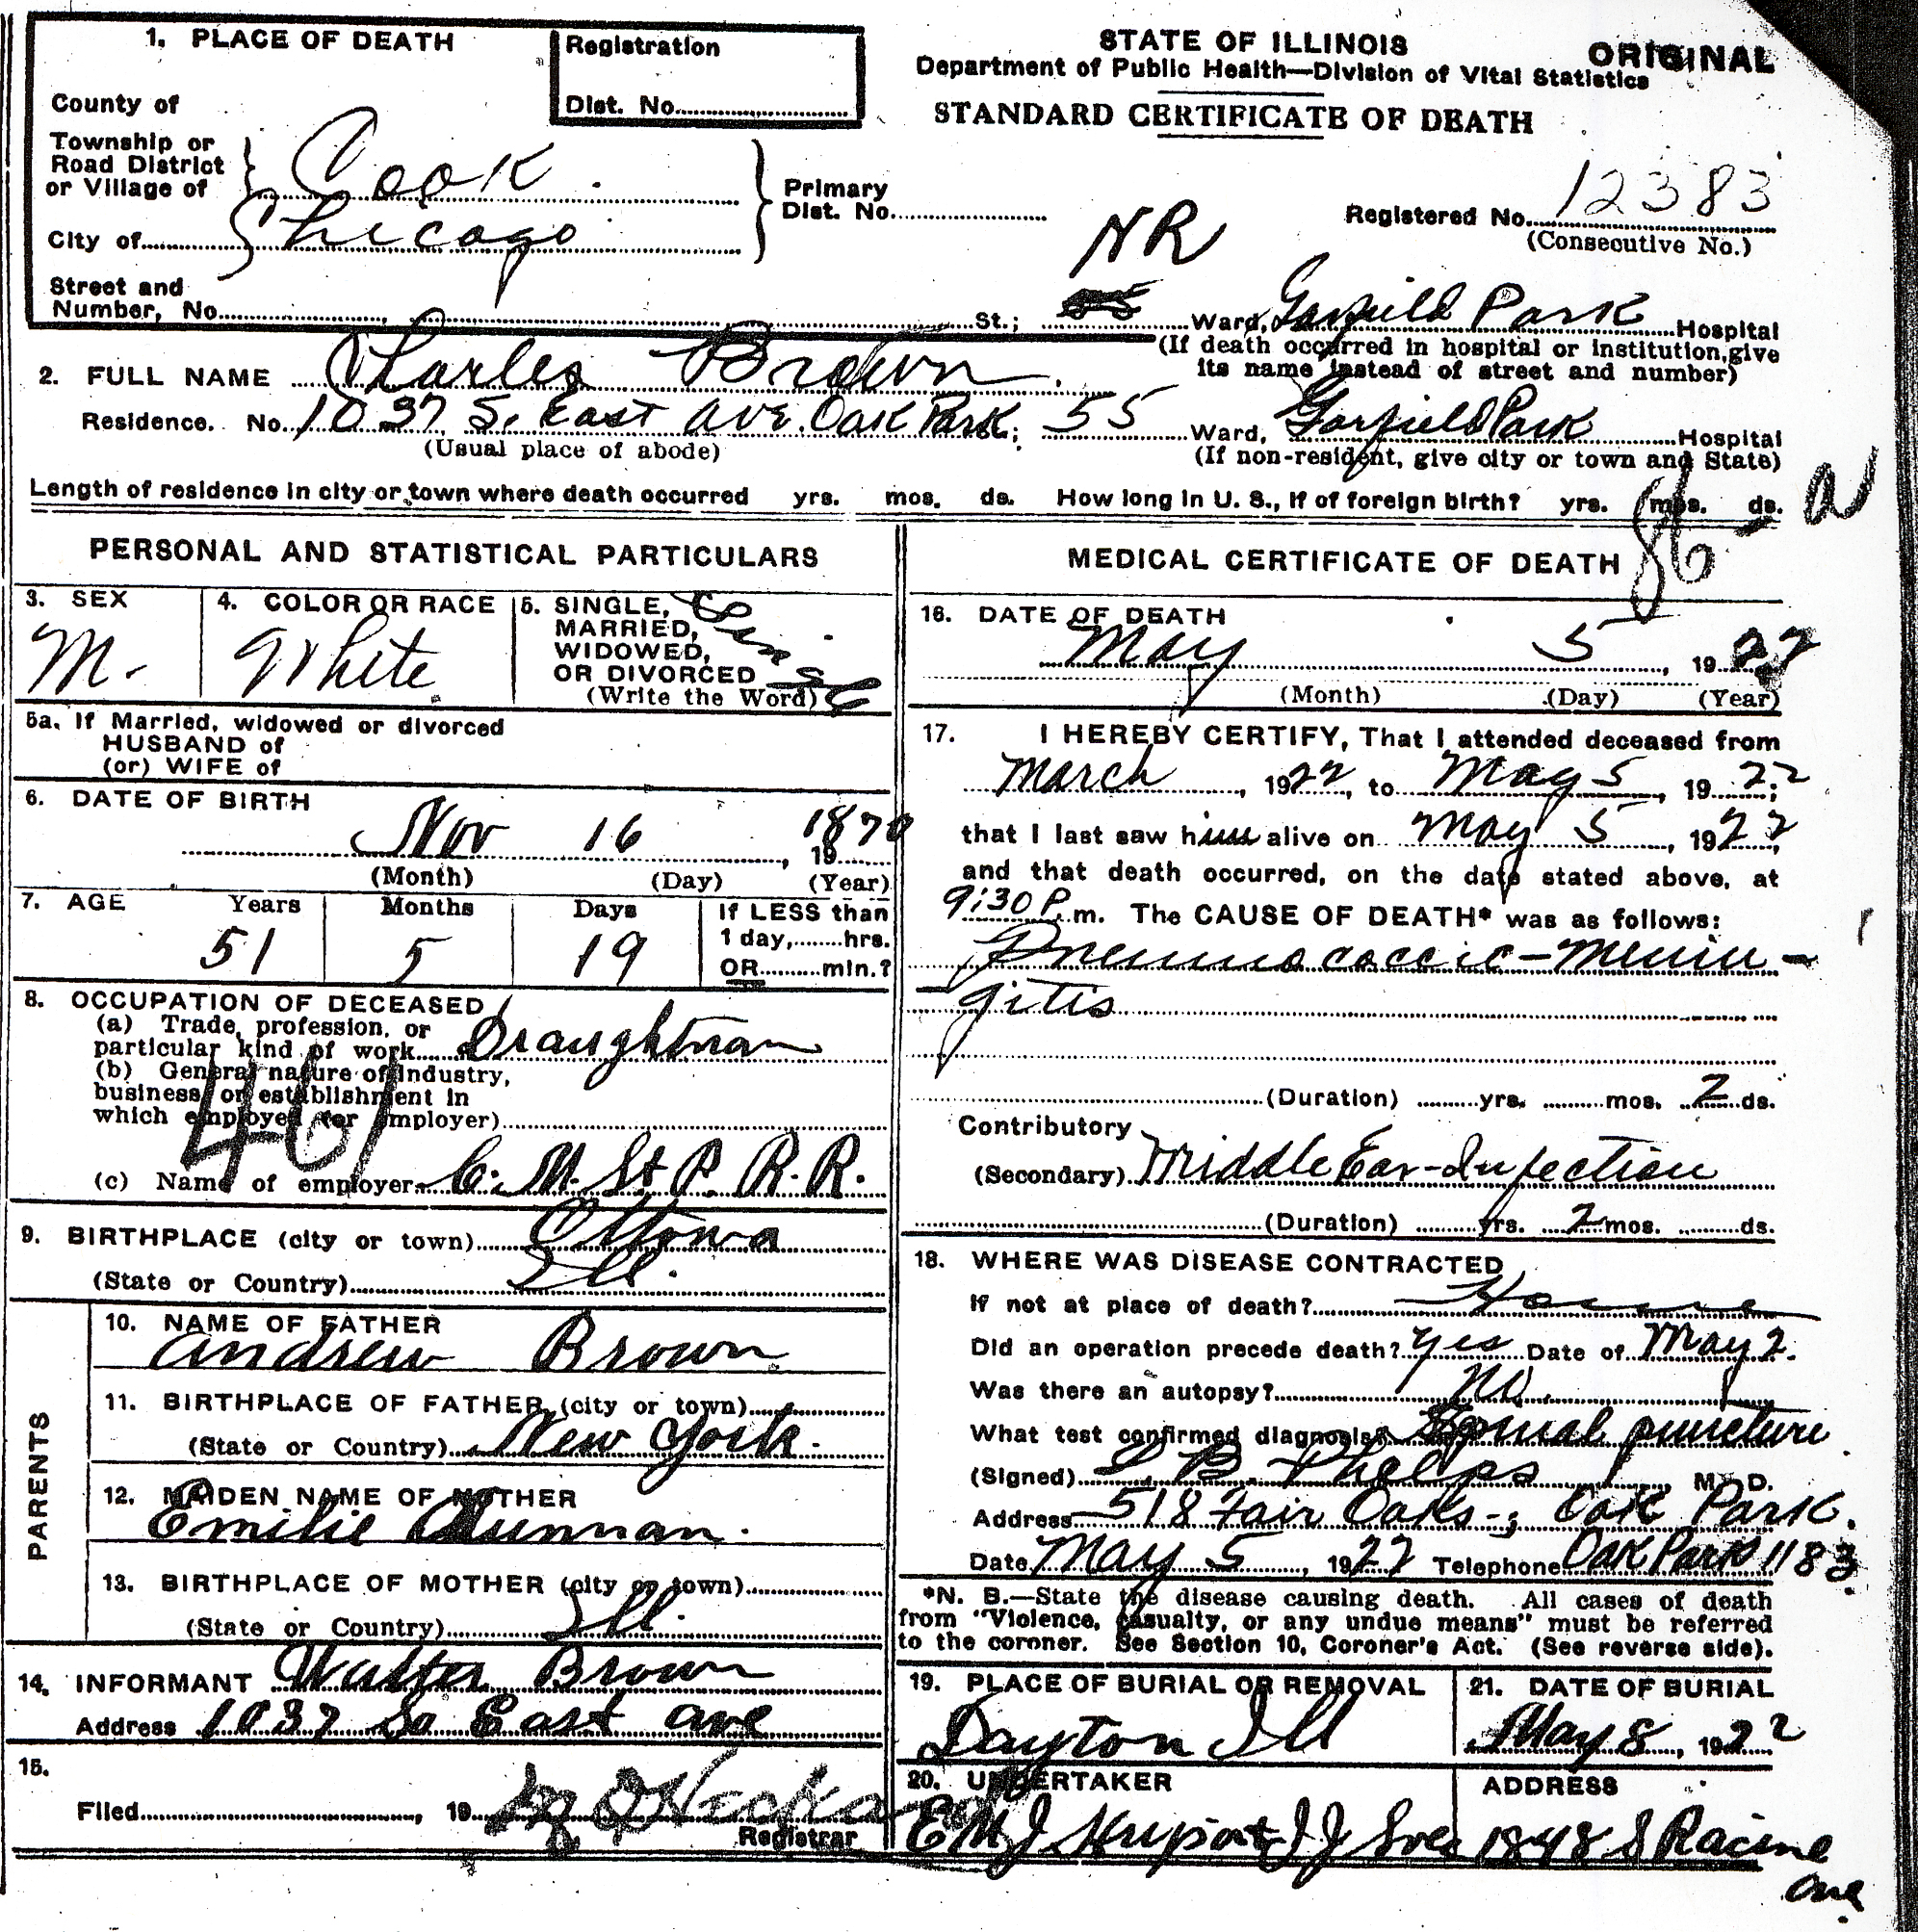 1. PLACE OF DEATH
Registration
Dist. No.
STATE OF ILLINOIS
ORIGINAL
Department of Public Health—Division of Vital Statistics
STANDARD CERTIFICATE OF DEATH
County of
Township or
Road District
or Village of
Cook
City of Chicago
Primary
Dist. No.
Registered No. 12383
(Consecutive No.)
NR
Street and
Number, No. St.; Ward, Garfield Park Hospital
(If death occurred in hospital or institution, give
its name instead of street and number)
2. FULL NAME Charles Brown
Residence. No. 1037 S. East Ave. Oak Park; 55 Ward, Garfield Park Hospital
(Usual place of abode)
(If non-resident, give city or town and State)
Length of residence in city or town where death occurred yrs. mos. ds. How long in U. S., if of foreign birth? yrs. mos. ds.
86 a
PERSONAL AND STATISTICAL PARTICULARS
3. SEX
M.
4. COLOR OR RACE
White
5. SINGLE,
MARRIED,
WIDOWED,
OR DIVORCED
(Write the Word)
Single
5a. If Married, widowed or divorced
HUSBAND of
(or) WIFE of
6. DATE OF BIRTH
Nov 16 1870
19
(Month) (Day) (Year)
7. AGE Years Months Days
51 5 19
If LESS than
1 day, hrs.
OR min.?
8. OCCUPATION OF DECEASED
(a) Trade, profession, or
particular kind of work Draughtman
(b) General nature of Industry,
business, or establishment in
which employed (or employer)
461
(c) Name of employer C. M. St P. R. R.
9. BIRTHPLACE (city or town) Ottowa
(State or Country) Ill.
PARENTS
10. NAME OF FATHER
Andrew Brown
11. BIRTHPLACE OF FATHER (city or town)
(State or Country) New York.
12. MAIDEN NAME OF MOTHER
Emilie
13. BIRTHPLACE OF MOTHER (city or town)
(State or Country) Ill.
14. INFORMANT Walter Brown
Address 1037 So East Ave
15.
Filed , 19
Registrar
MEDICAL CERTIFICATE OF DEATH
16. DATE OF DEATH
May 5, 1922
(Month) (Day) (Year)
17. I HEREBY CERTIFY, That I attended deceased from
March, 1922, to May 5, 1922;
that I last saw him alive on May 5, 1922,
and that death occurred, on the date stated above, at
9:30 P. m. The CAUSE OF DEATH* was as follows:
Pneumococcic-Menin-
gitis
(Duration) yrs. mos. 2 ds.
Contributory
(Secondary) Middle Ear-Infection
(Duration) yrs. 2 mos. ds.
18. WHERE WAS DISEASE CONTRACTED
If not at place of death? Home
Did an operation precede death? Yes Date of May 2.
Was there an autopsy? No.
What test confirmed diagnosis? Spinal puncture
(Signed) B. Phelps, M. D.
Address 518 Fair Oaks-; Oak Park.
Date May 5, 1922 Telephone Oak Park 1183
*N. B.—State the disease causing death. All cases of death
from "Violence, casualty, or any undue means" must be referred
to the coroner. See Section 10, Coroner's Act. (See reverse side).
19. PLACE OF BURIAL OR REMOVAL
Dayton Ill
21. DATE OF BURIAL
May 8, 1922
20. UNDERTAKER
ADDRESS
1848 S Racine
Ave